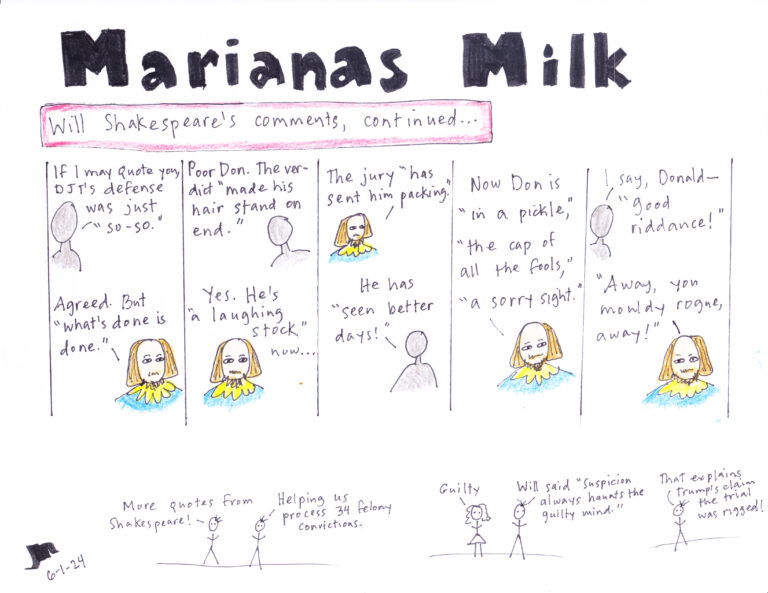 Marianas Milk
Will Shakespeare's comments, continued...
If I may quote you,
DJT's defense
was just
"so-so."
Agreed. But
"what's done is
done."
Poor Don. The ver-
dict "made his
hair stand on
end."
Yes. He's
"a laughing
stock"
now...
The jury "has
sent him packing."
He has
"seen better
days!"
Now Don is
"in a pickle,"
"the cap of
all the fools,"
"a sorry sight."
I say, Donald—
"good
riddance!"
"Away, you
mouldy rogue,
away!"
More quotes from
Shakespeare!
Helping us
process 34 felony
convictions.
Guilty
Will said "Suspicion
always haunts the
guilty mind."
That explains
Trump's claim
the trial
was rigged!
6-1-24